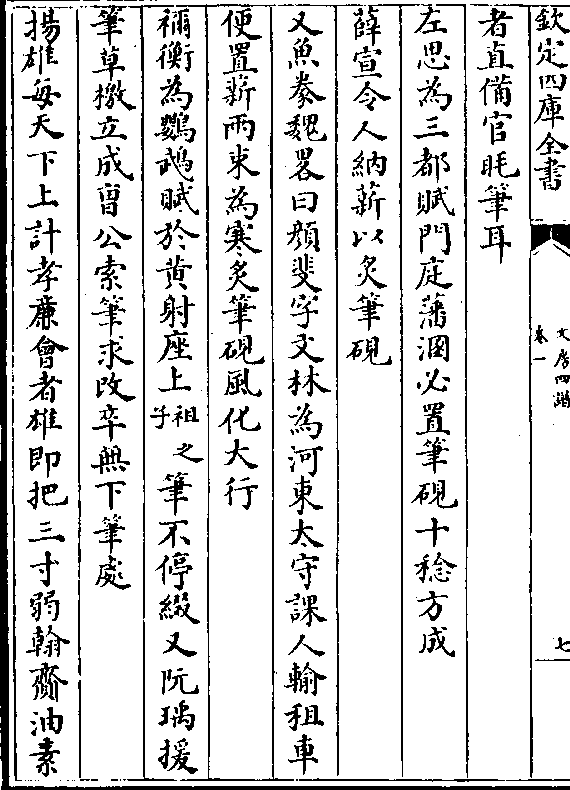 欽定四庫全書
文房四譜
卷一
七
者直備官眊筆耳
左思為三都賦門庭藩溷必置筆硯十稔方成
薛宣令人納薪以炙筆硯
又魚豢魏畧曰顏斐字文林為河東太守課人輸租車
便置薪兩束為寒炙筆硯風化大行
禰衡為鸚鵡賦於黄射座上祖之子筆不停綴又阮瑀援
筆草檄立成曺公索筆求改卒無下筆處
揚雄每天下上計孝廉會者雄即把三寸弱翰齎油素